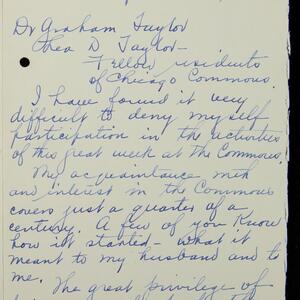 Dr Graham Taylor
Lea D. Taylor -
Fellow residents
of Chicago Commons.
I have found it very
difficult to deny my self
participation in the activities
of this great week at the Commons.
My acquaintance with
and interest in the Commons
covers just a quarter of a
century. A few of you know
how it started - what it
meant to my husband and to
me. The great privilege of